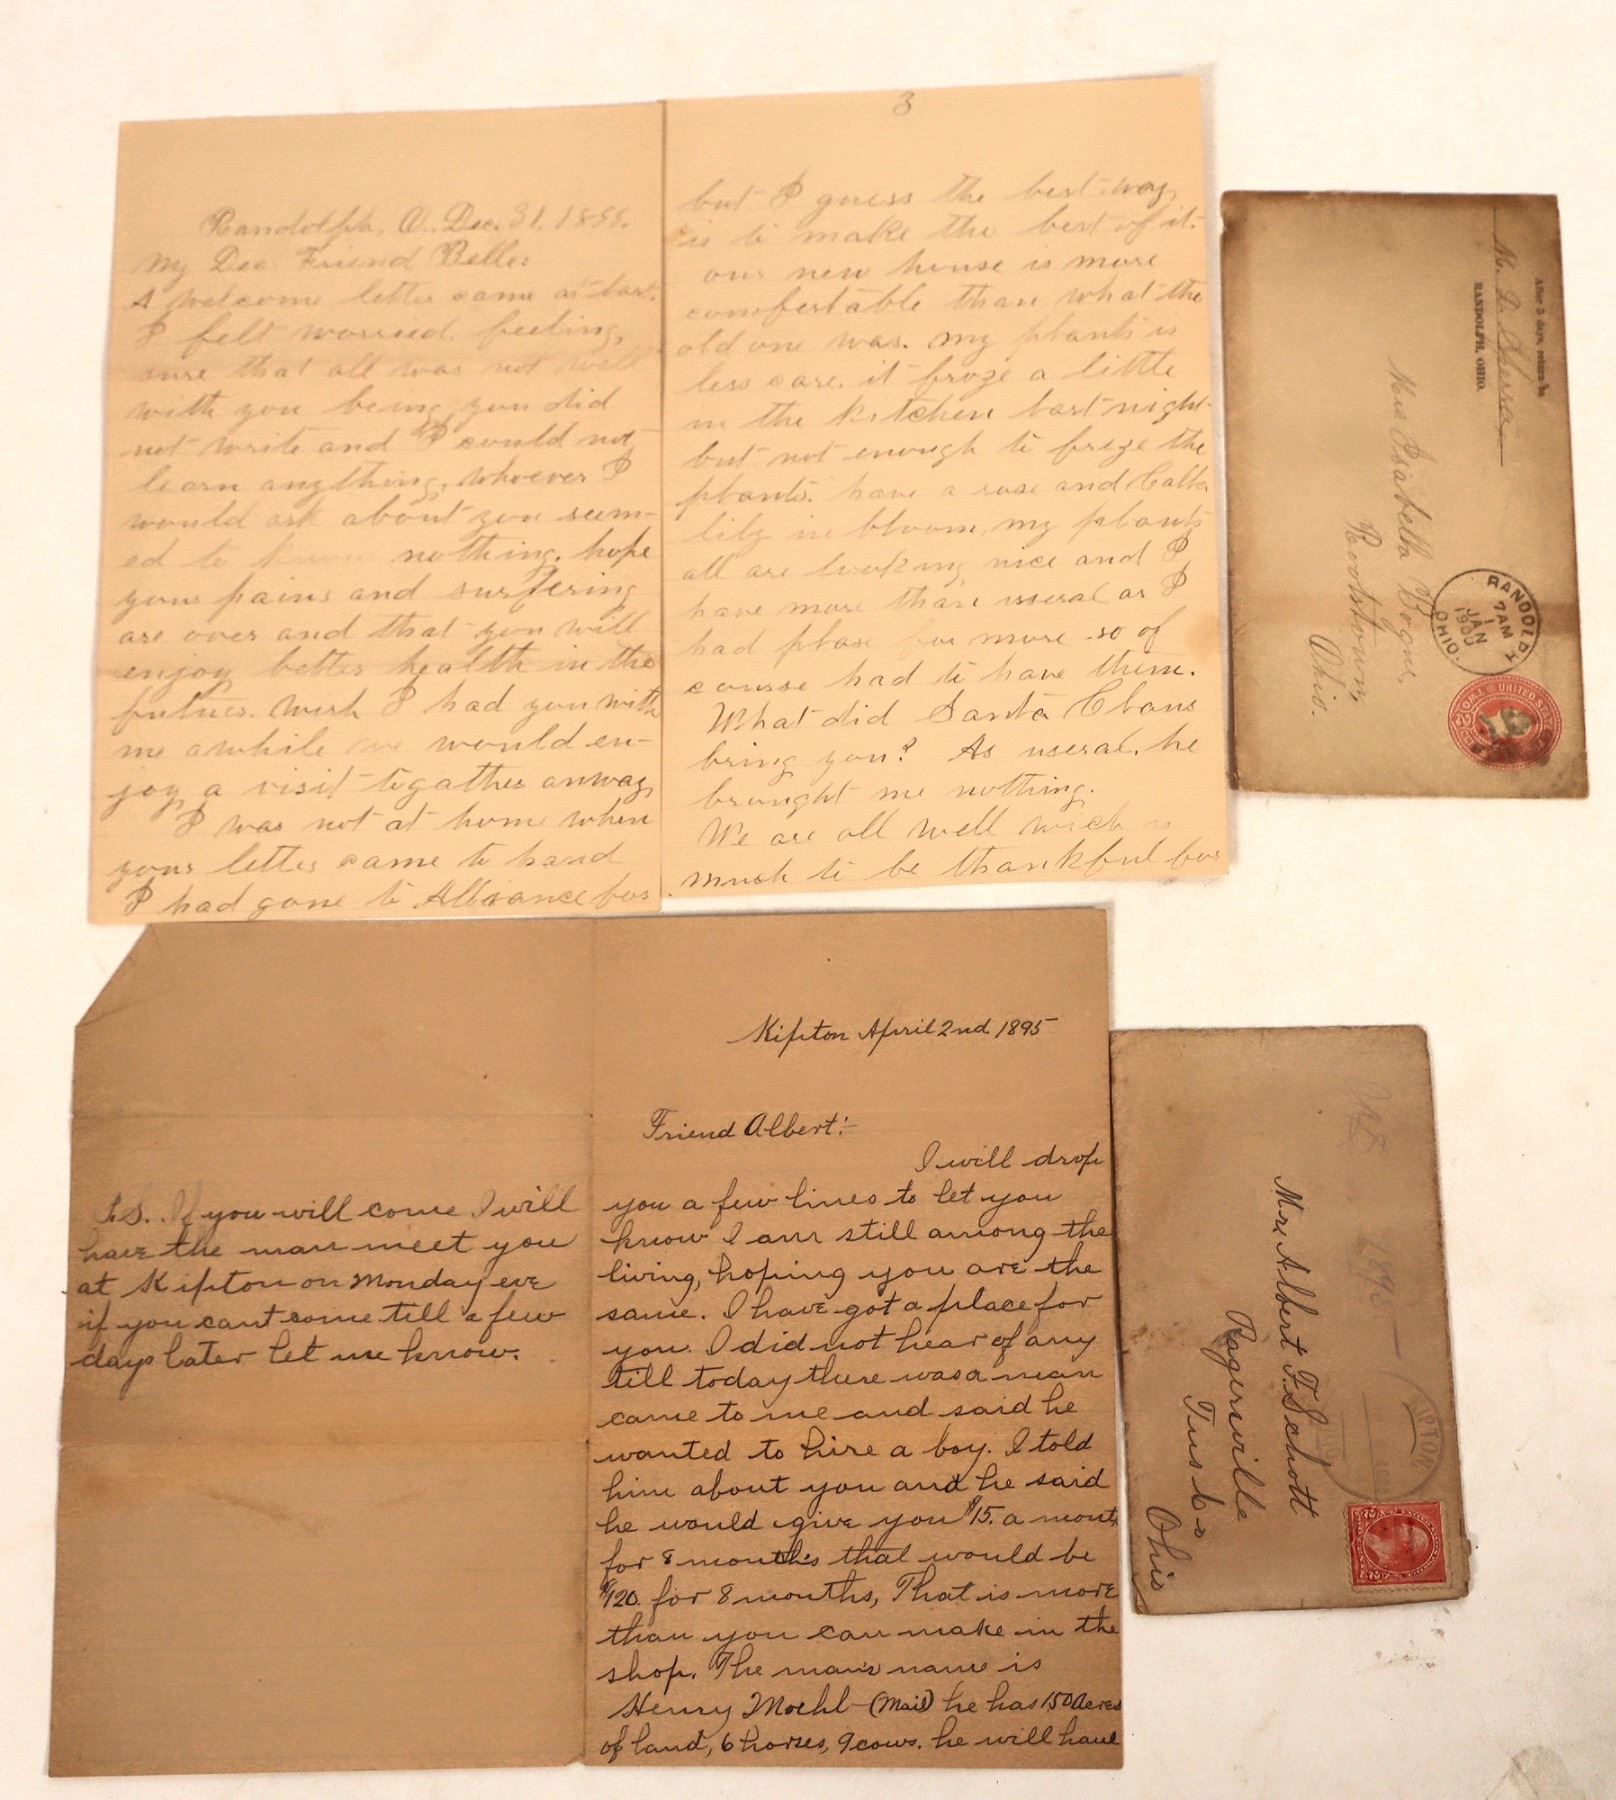 Randolph, O. Dec. 31, 1899.
My Dea Friend Belle:
A welcome letter came at last.
I felt worried feeling,
sure that all was not well
with you being you did
not write and I could not
learn anything, whoever I
would ask about you seem-
ed to know nothing. hope
your pains and surfering
are over and that you will
enjoy better health in the
future. Wish I had you with
me awhile we would en-
joy a visit togather anway
I was not at home when
your letter came to hand
I had gone to Alliance for
3
but I guess the best way
is to make the best of it.
our new house is more
comfortable than what the
old one was. my plants is
less care. it froze a little
in the kitchen last night
but not enough to freze the
plants. have a rose and Calla
lily in bloom, my plants
all are looking nice and I
have more than useral as I
had plase for more so of
course had to have them.
What did Santa Claus
bring you? As useral, he
brought me nothing.
We are all well wich is
much to be thankful for
After 5 days, return to
RANDOLPH, OHIO.
Miss Isabella Bogne,
Rootstown,
Ohio.
RANDOLPH
7 AM
JAN
1
1900
OHIO.
UNITED STATES
P.S. If you will come I will
have the man meet you
at Kipton on Monday eve
if you cant come till a few
days later let me know.
Kipton April 2nd 1895
Friend Albert:-
I will drop
you a few lines to let you
know I am still among the
living, hoping you are the
same. I have got a place for
you. I did not hear of any
till today there was a man
came to me and said he
wanted to hire a boy. I told
him about you and he said
he would give you $15. a month
for 8 months that would be
$120. for 8 months, That is more
than you can make in the
shop. The man's name is
Henry Moehl (Mail) he has 150 Acres
of land, 6 horses, 9 cows. he will have
Mr. Albert F. Schott
Ragersville
Tus Co
Ohio